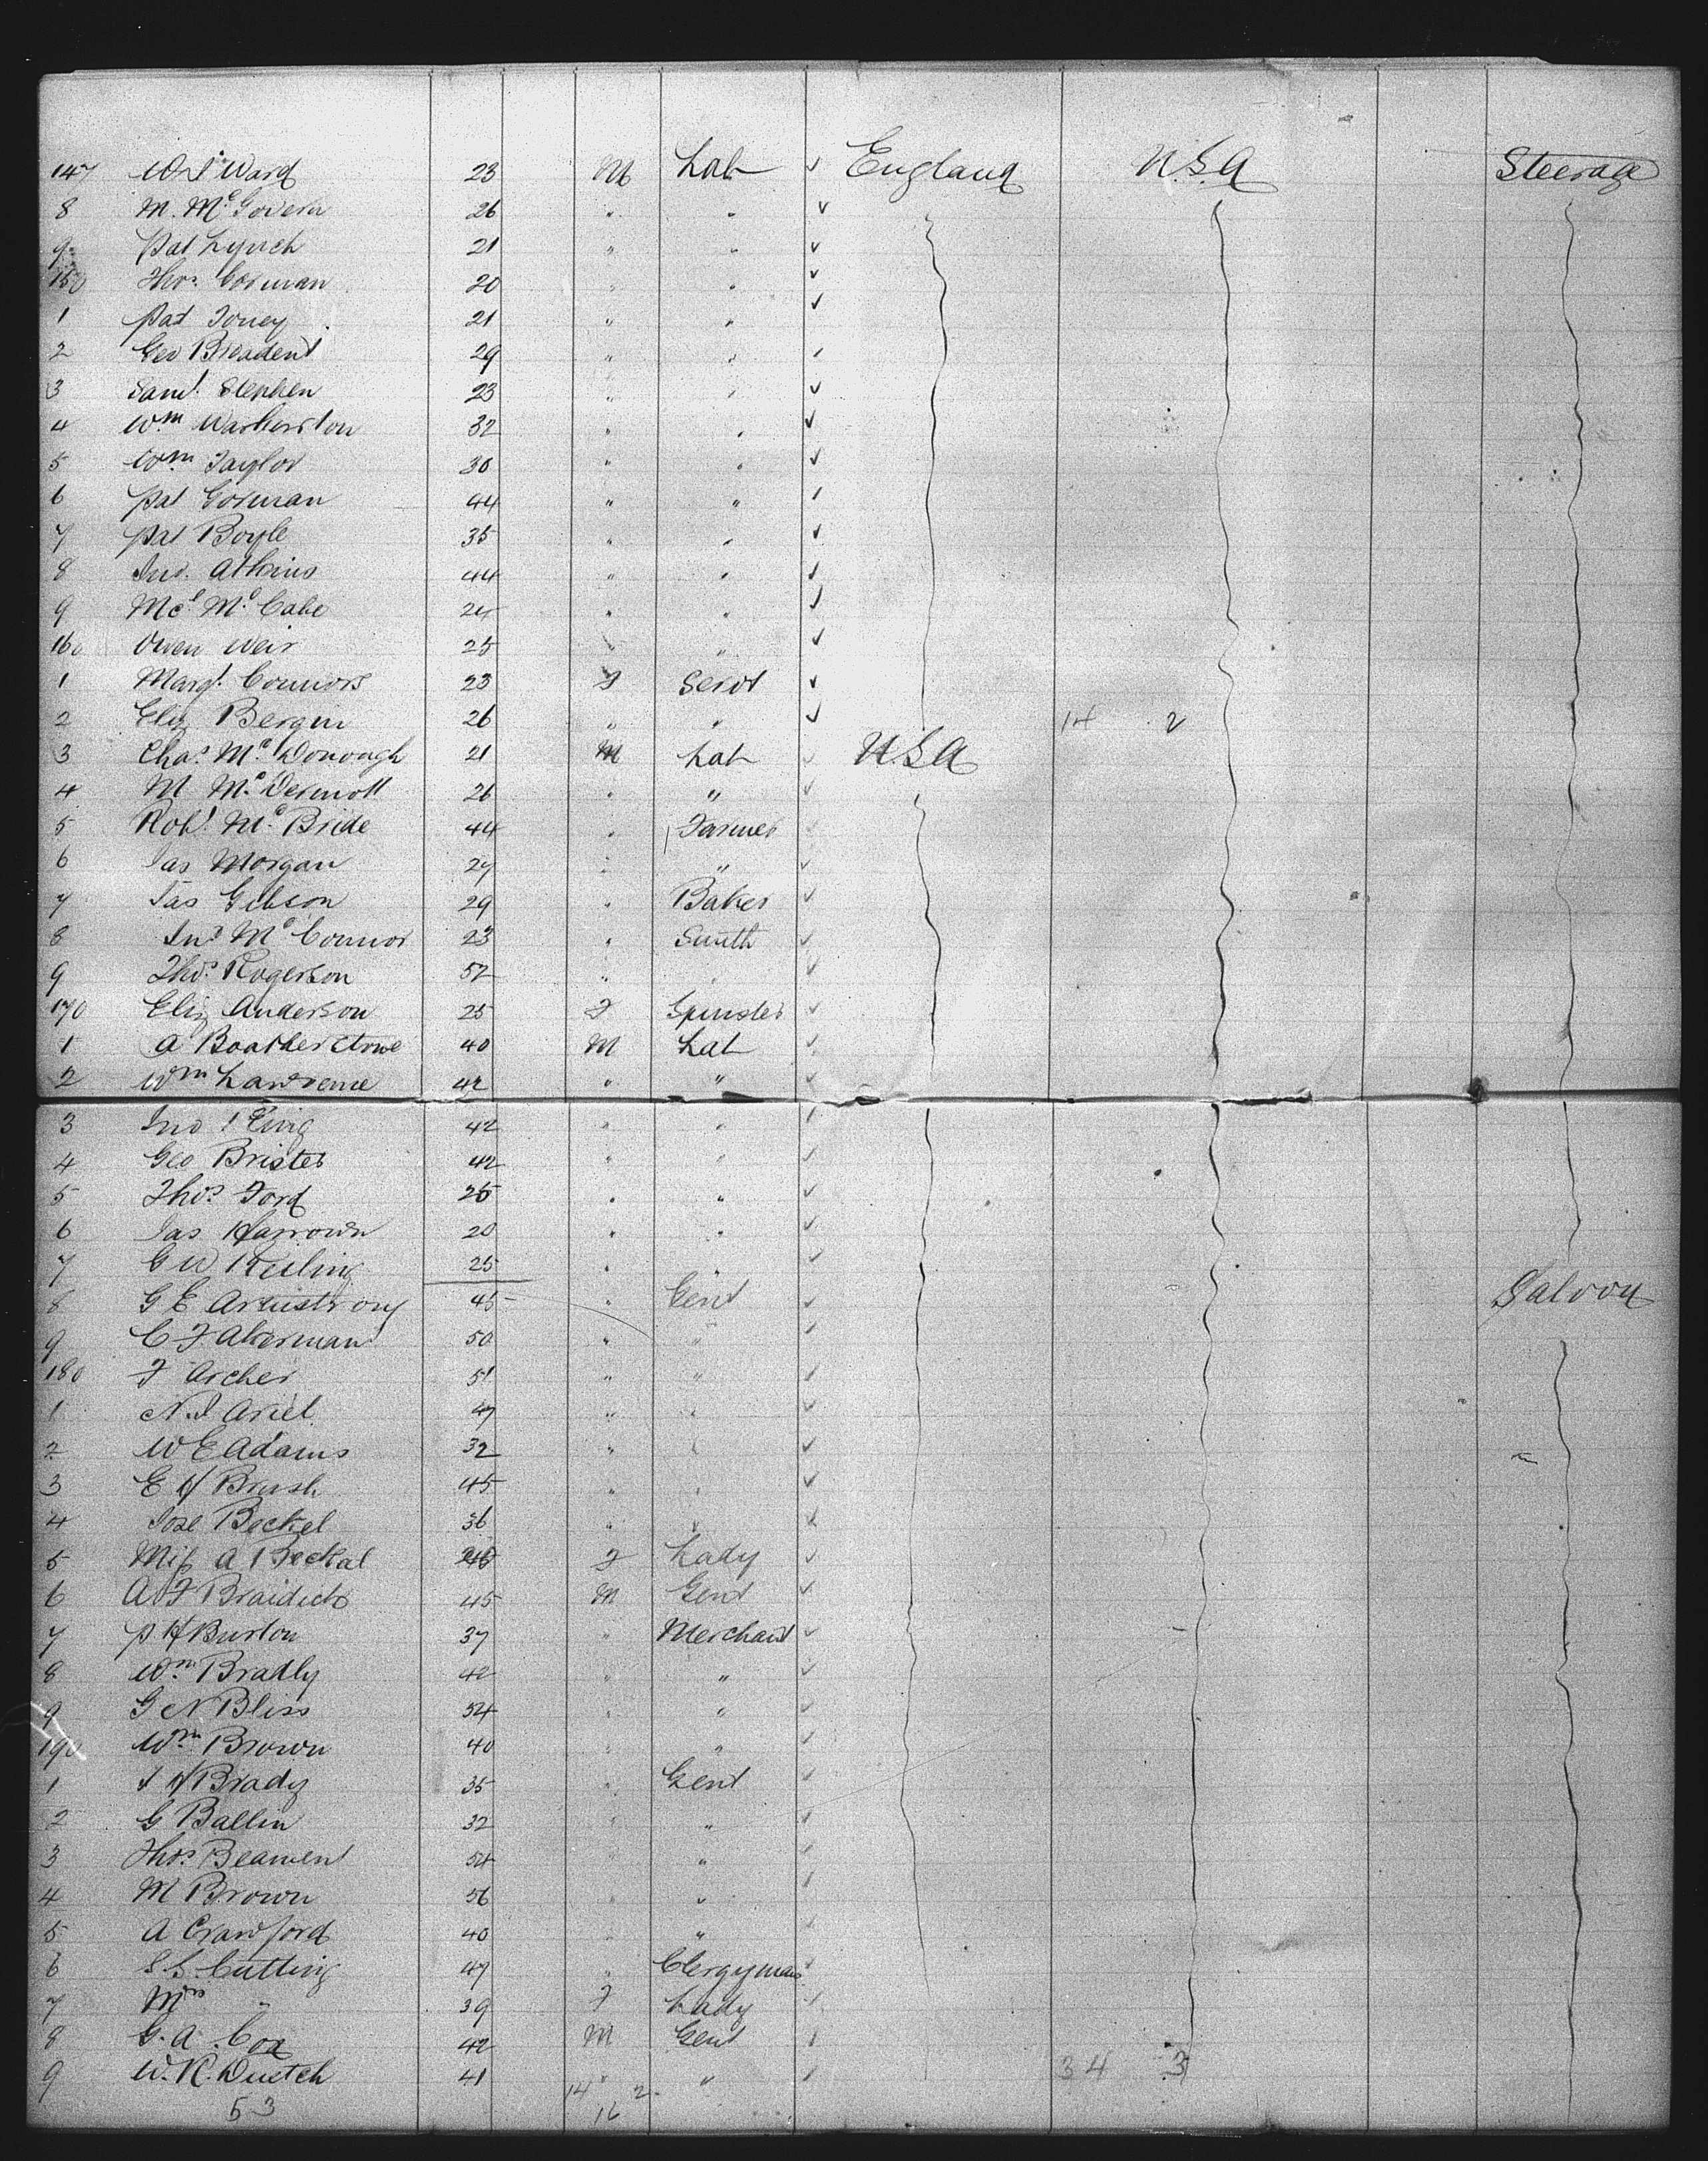 147 W J Ward 23 M Lab ✓ England U.S.A Steerage
8 M. McGovern 26 " " ✓
9 Pat Lynch 21 " " ✓
150 Thos. Gorman 20 " " ✓
1 Pat Toney 21 " " ✓
2 Geo Broadent 29 " " ✓
3 Saml. Stephen 23 " " ✓
4 Wm Warburton 32 " " ✓
5 Wm Taylor 30 " " ✓
6 Pat Gorman 44 " " ✓
7 Pat Boyle 35 " " ✓
8 Jno. Atkins 44 " " ✓
9 McCabe " " ✓
160 Owen Weir 25 " " ✓
1 Margt. Connors 23 F Servt ✓
2 Eliz Bergin 26 " " ✓ 14 2
3 Chas McDonough 21 M Lab ✓ USA
4 M McDermott 26 " " ✓
5 Robt. McBride 44 " Farmer ✓
6 Jas Morgan 27 " " ✓
7 Jas Gibson 29 " Baker ✓
8 Jno McConnor 23 " Smith ✓
9 Thos Rogerson 52 " " ✓
170 Eliz Anderson 25 F Spinster ✓
1 A Boatherstone 40 M Lab ✓
2 Wm Lawrence 42 " " ✓
3 Jno King 42 " " ✓
4 Geo Brister 42 " " ✓
5 Thos Ford 25 " " ✓
6 Jas Harrown 20 " " ✓
7 G W Keeling 25 " " ✓
8 G E Armstrong 45 " Gent ✓ Saloon
9 C F Akerman 50 " " ✓
180 F Archer 51 " " ✓
1 N.J Ariel 47 " " ✓
2 W E Adams 32 " " ✓
3 E H Brush 45 " " ✓
4 Jose Beckel 36 " " ✓
5 Miss A Beckal F Lady ✓
6 A F Braidich 45 M Gent ✓
7 P H Burton 37 " Merchant ✓
8 Wm Bradly 42 " " ✓
9 G N Bliss 54 " " ✓
190 Wm Brown 40 " " ✓
1 J H Brady 35 " Gent ✓
2 G Ballin 32 " " ✓
3 Thos Beament 54 " " ✓
4 M Brown 56 " " ✓
5 A Crawford 40 " " ✓
6 S.S. Cutting 47 " Clergyman ✓
7 Mrs " 39 F Lady ✓
8 G. A. Cox 42 M Gent ✓
9 W. R. Dustch 41 " " ✓ 34 3
53 14 2
16